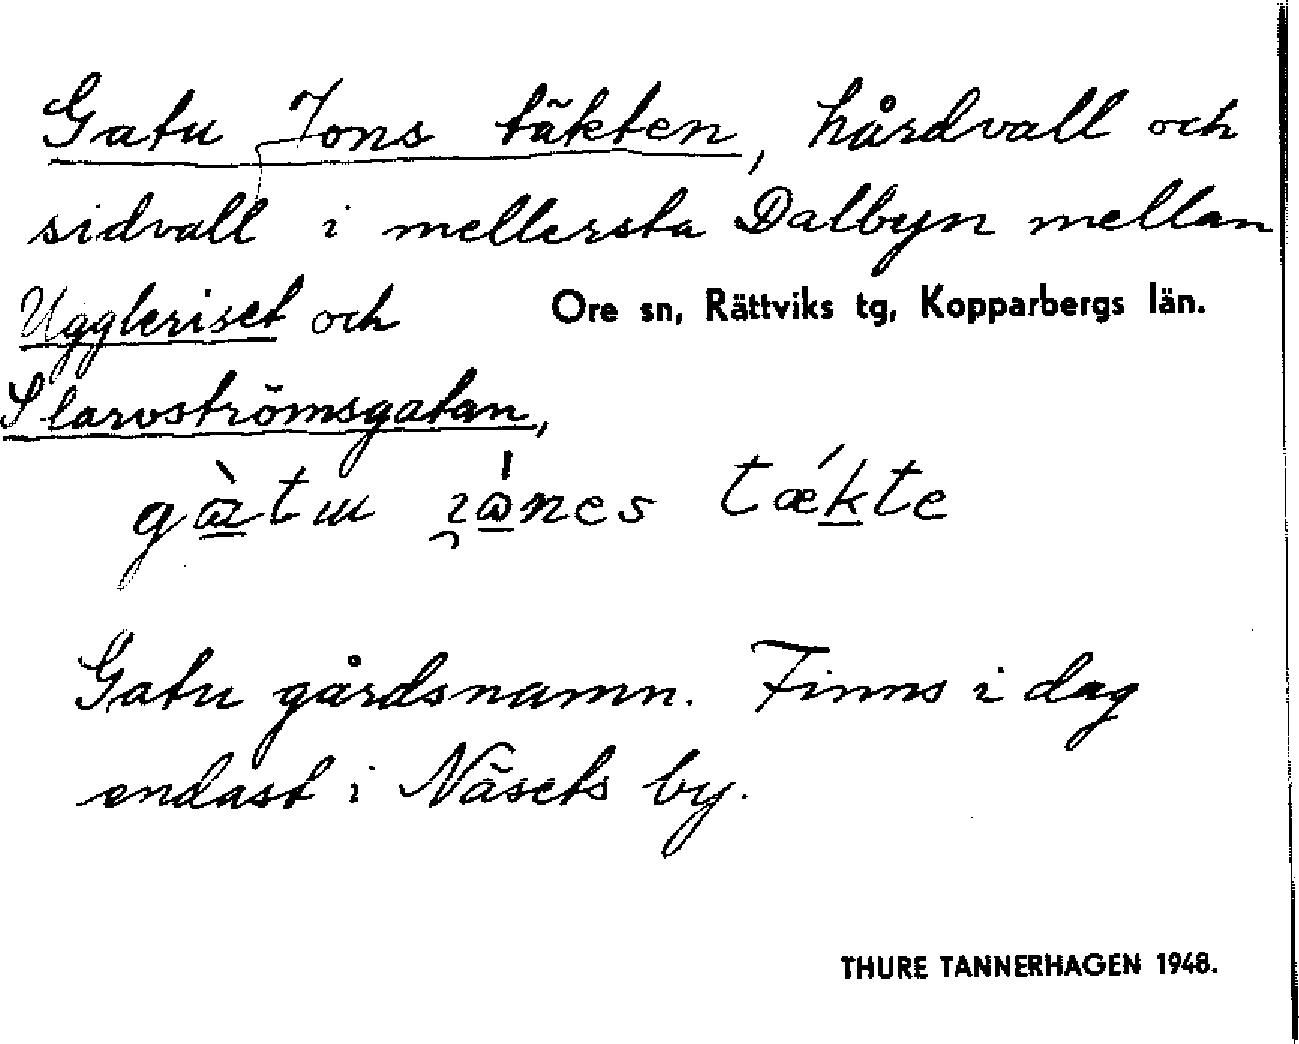 Gatu Jons täkten, hårdvall och
sidvall i mellersta Dalbyn mellan
Uggleriset och
Ore sn, Rättviks tg, Kopparbergs län.
Slarvströmsgatan,
Gatu gårdsnamn. Finns i dag
endast i Näsets by.
THURE TANNERHAGEN 1948.